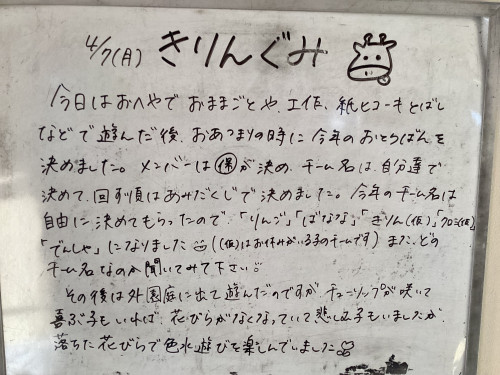 4/7(月) きりんぐみ
今日はおへやで おままごとや、工作、紙ヒコーキとばし
などで遊んだ後、おあつまりの時に今年のおとうばんを
決めました。メンバーは(保)が決め、チーム名は、自分達で
決めて、回す順はあみだくじで決めました。今年のチーム名は
自由に決めてもらったので、「りんご」「ばなな」「きりん(仮)」「クロミ(仮)」
「でんしゃ」になりました((仮)はお休みがいる子のチームです) また、どの
チーム名なのか聞いてみて下さい
その後は外園庭に出て遊んだのですが、チューリップが咲いて
喜ぶ子もいれば、花びらがなくなっていて悲しむ子もいましたが、
落ちた花びらで色水遊びを楽しんでいました